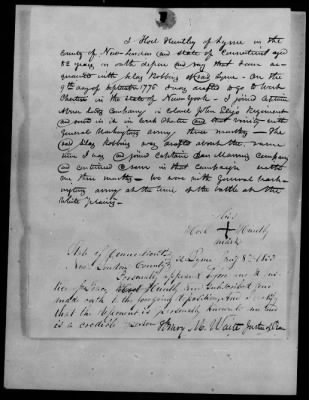 I Hoel Huntly of Lyme in the
County of New-London and State of Connecticut aged
82 years, on oath depose and say that I am ac-
quainted with Silas Robbins of said Lyme - On the
9th day of September 1776 I was drafted to go to West
Chester in the State of New-York - I joined
Company in Colonel John Ely's Regiment
and served in it in West Chester and that vicinity with
General Washington's army three months - The
said Silas Robbins was drafted about the same
time I was and joined Captain Dan Marvins Company
and continued to serve in that campaign with
me three months - We were with General Wash-
ington's army at the time of the battle at the
White Plains -
his
Hoel + Huntly
mark
State of Connecticut
New London County } ss Lyme May 8th 1833
Personally appeared before me a Jus-
tice of Peace Hoel Huntly and Subscribed and
made oath to the foregoing deposition, And I certify
that the deponent is personally known to me and
is a credible person Henry M. Waite Justice of Peace